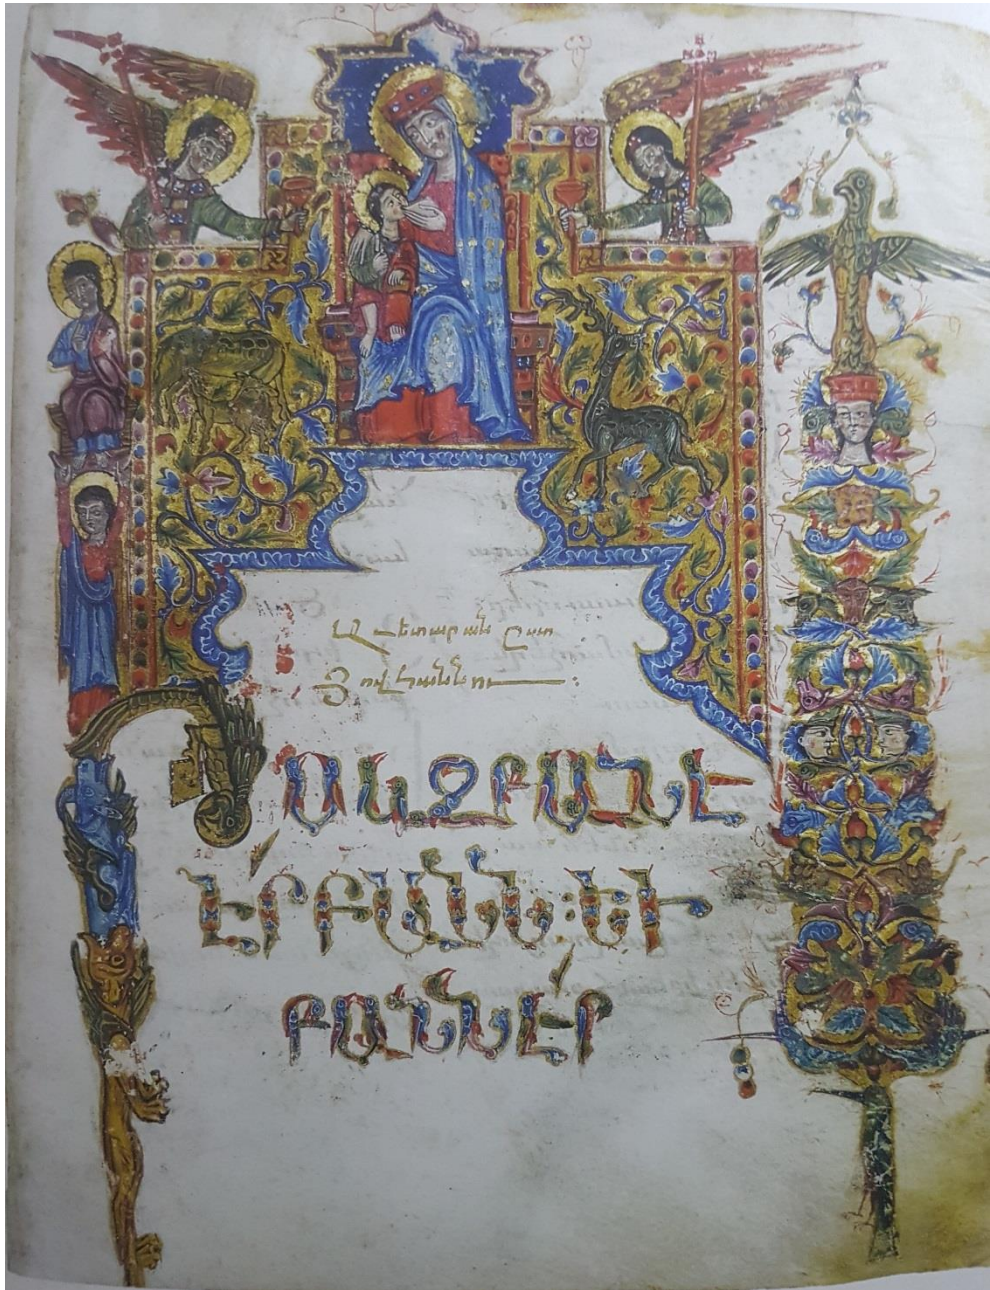 Աւետարան ըստ
Յովհաննու։
ԻՍԿԶԲԱՆԷ
ԷՐ ԲԱՆՆ։ ԵՒ
ԲԱՆՆ ԷՐ